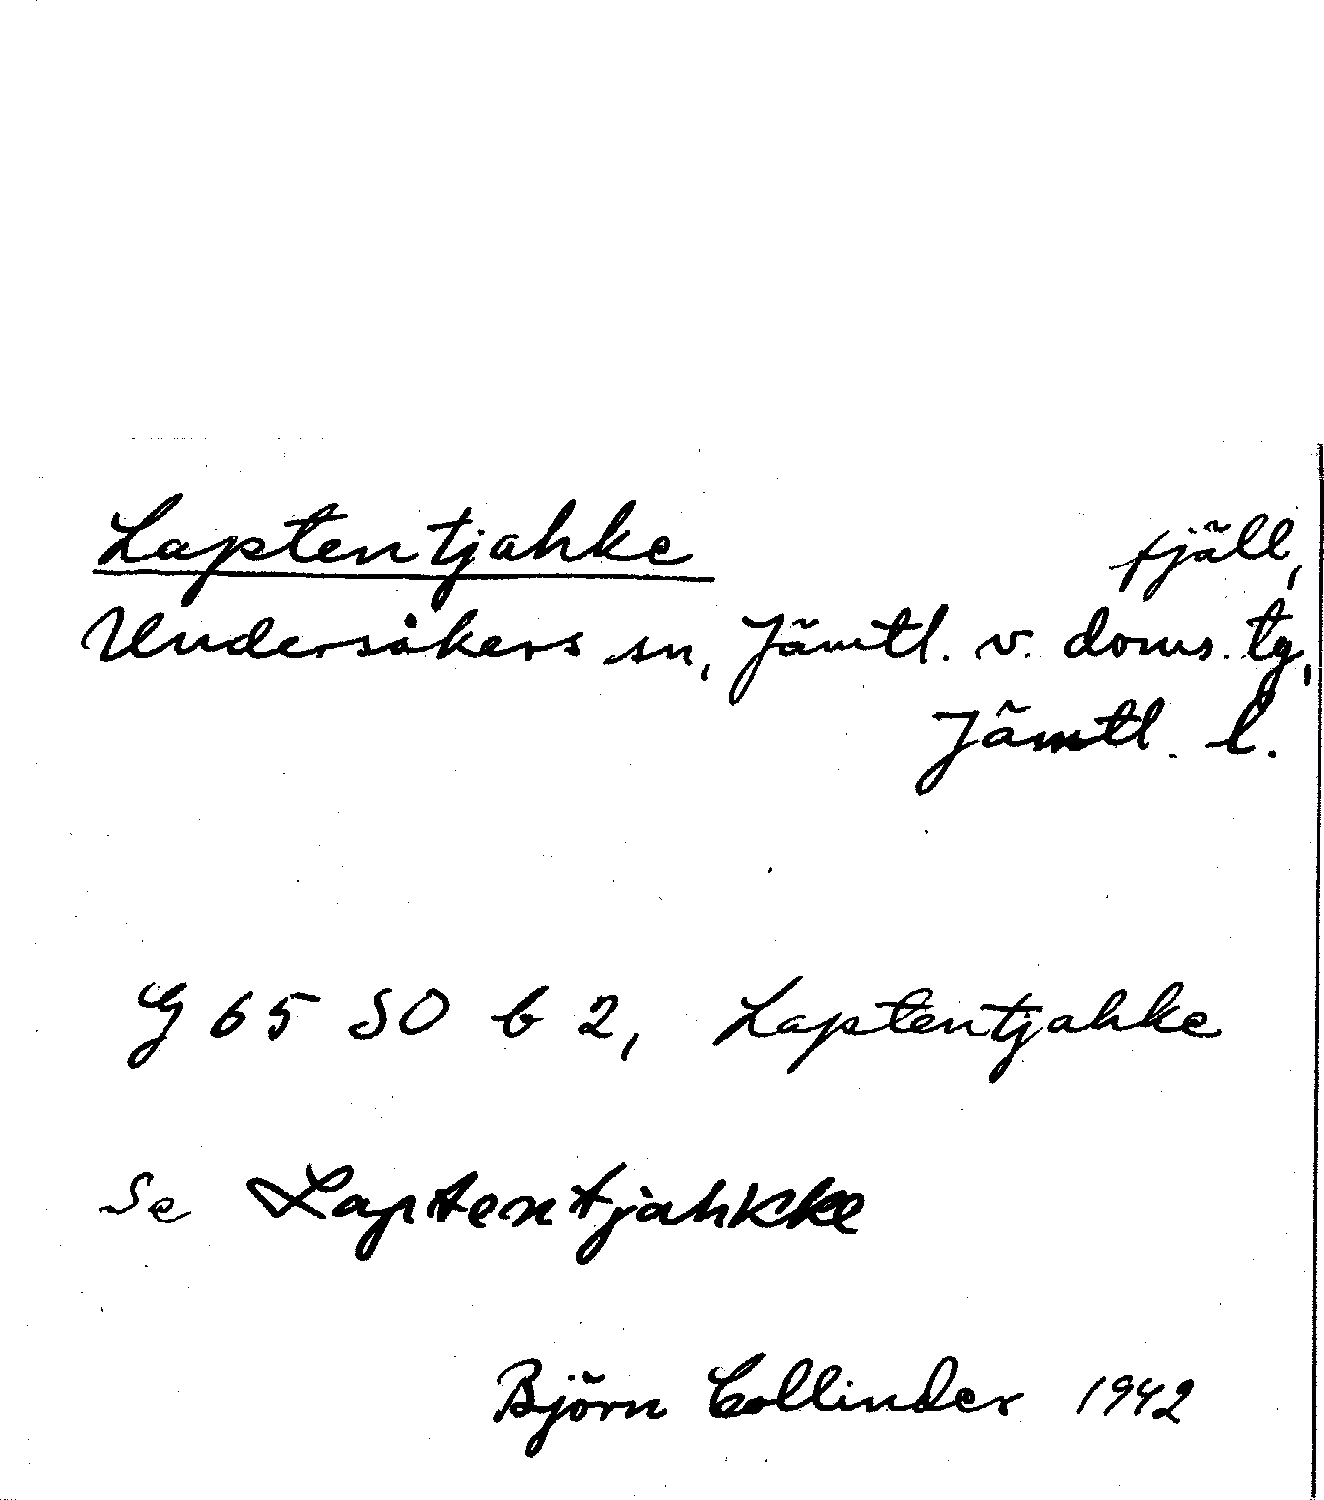 Laptentjahke fjäll,
Undersåkers sn, Jämtl. v. doms. tg,
Jämtl. l.
G 65 SO b 2, Laptentjahke
Se Laptentjahkke
Björn Collinder 1942